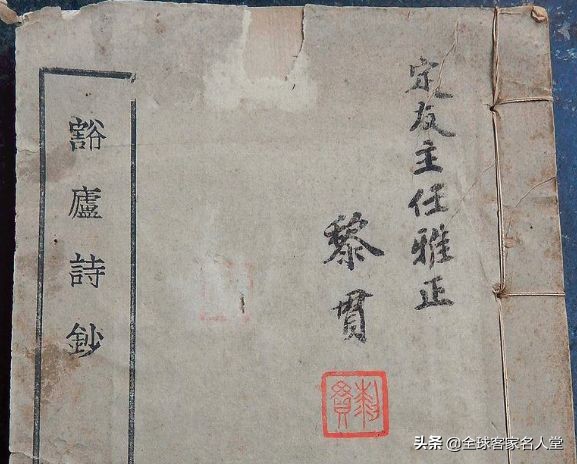 宗友主任雅正
黎貫
豁廬詩鈔
头条 @全球客家名人堂